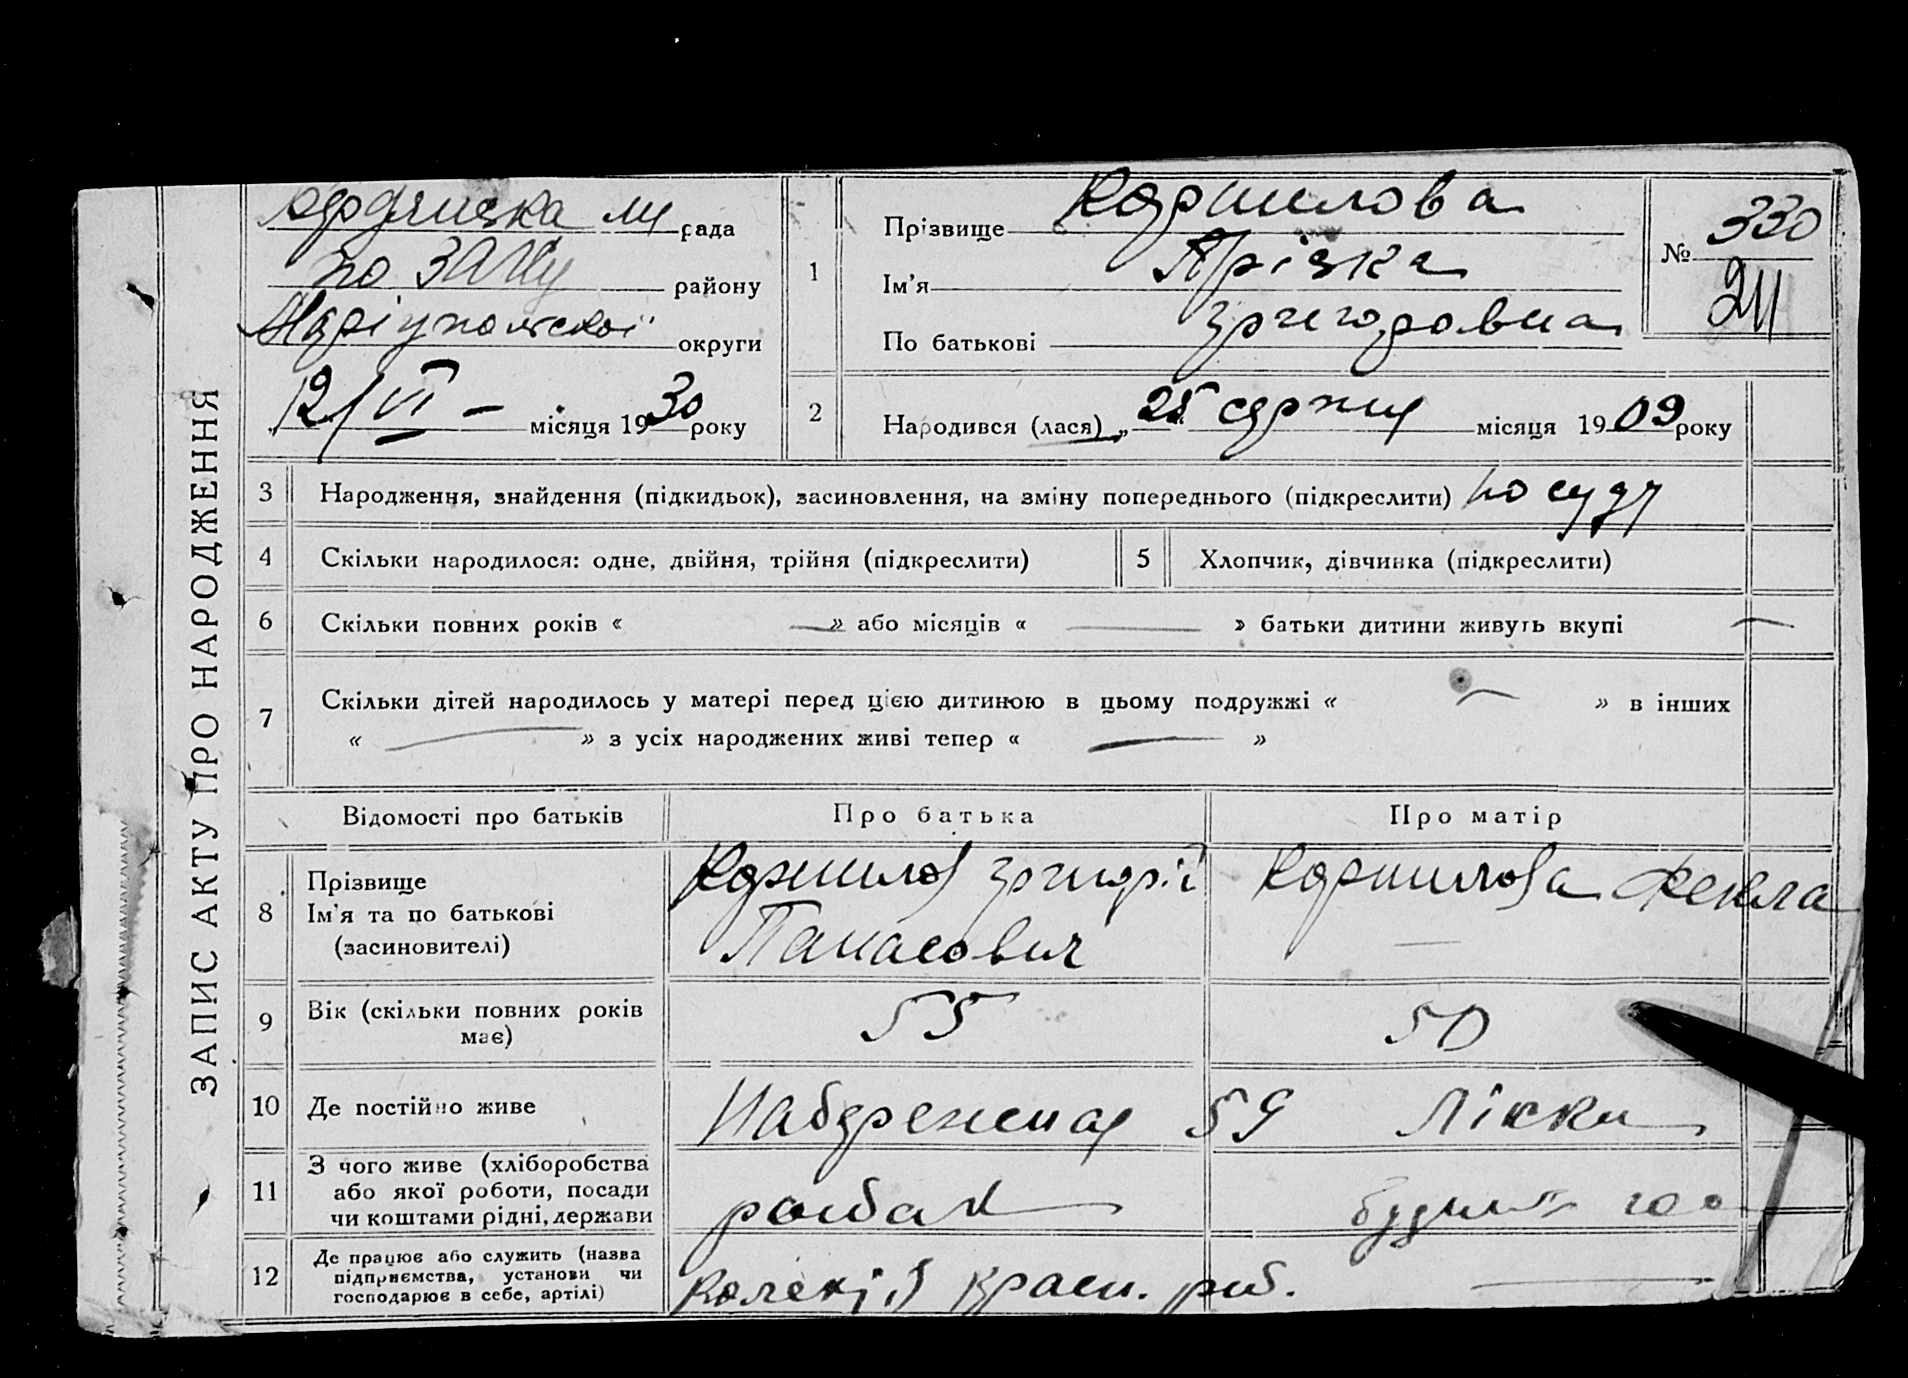 ЗАПИС АКТУ ПРО НАРОДЖЕННЯ
рада
по ЗАГСу району
Маріупольської округи
12/VI — місяця 1930 року
1
Прізвище Кормилова
Ім'я
По батькові Григоровна
№ 330
211
2
Народився (лася) „25“ серпня місяця 1909 року
3 Народження, знайдення (підкидьок), засиновлення, на зміну попереднього (підкреслити) по суду
4 Скільки народилося: одне, двійня, трійня (підкреслити)
5 Хлопчик, дівчинка (підкреслити)
6 Скільки повних років « — » або місяців « — » батьки дитини живуть вкупі —
7 Скільки дітей народилось у матері перед цією дитиною в цьому подружжі « — » в інших
« — » з усіх народжених живі тепер « — »
Відомості про батьків Про батька Про матір
8 Прізвище
Ім'я та по батькові
(засиновителі)
Кормилов Григорій Кормилова Фекла
Панасович —
9 Вік (скільки повних років має) 55 50
10 Де постійно живе Набережная 59 Ліски
11 З чого живе (хліборобства
або якої роботи, посади
чи коштами рідні, держави
рыбак
12 Де працює або служить (назва
підприємства, установи чи
господарює в себе, артілі)
Красн. риб. —